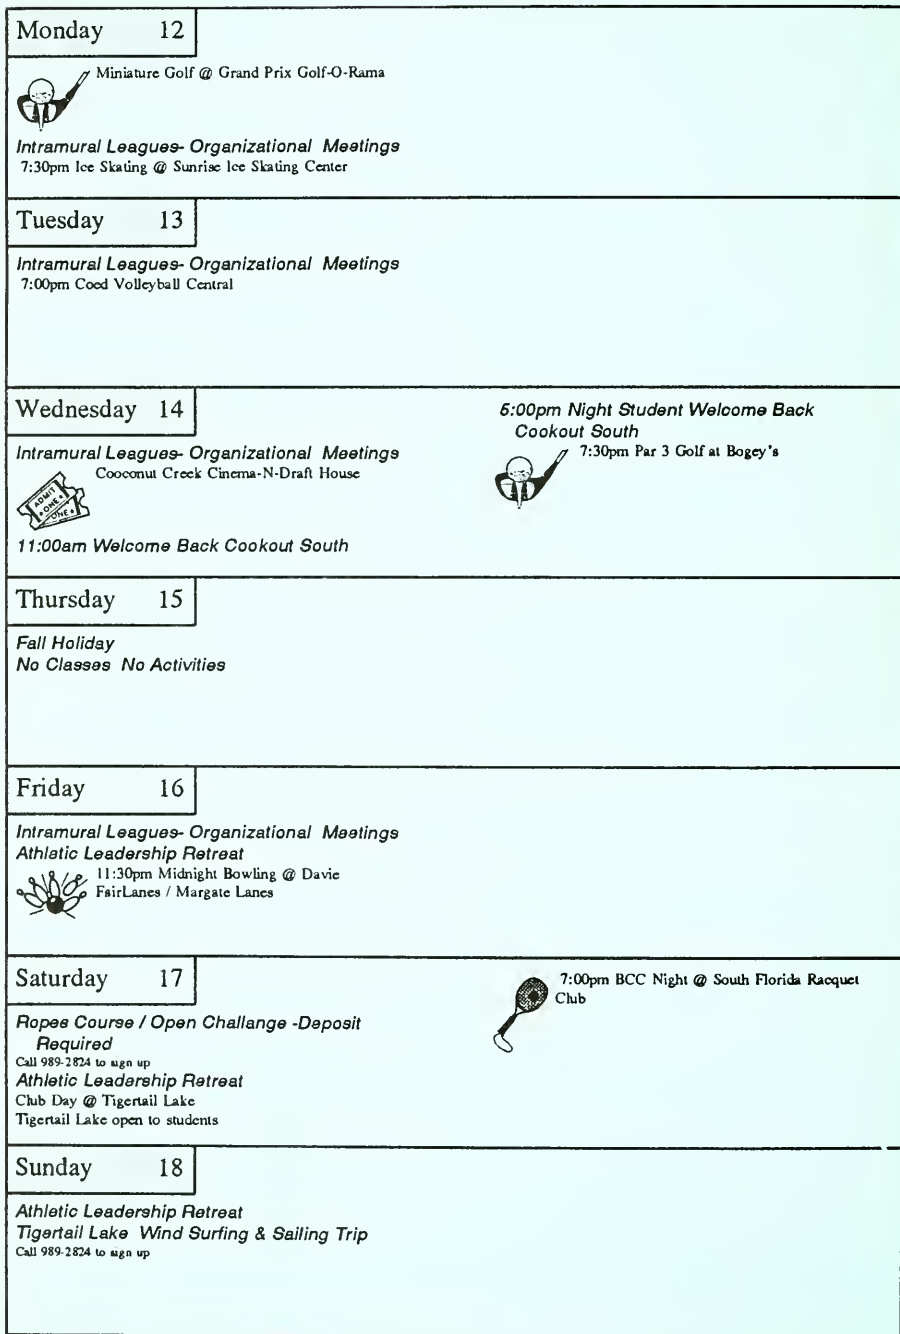 Monday 12
Miniature Golf @ Grand Prix Golf-O-Rama
Intramural Leagues- Organizational Meetings
7:30pm Ice Skating @ Sunrise Ice Skating Center
Tuesday 13
Intramural Leagues- Organizational Meetings
7:00pm Coed Volleyball Central
Wednesday 14
Intramural Leagues- Organizational Meetings
Cooconut Creek Cinema-N-Draft House
ADMIT
ONE
ONE
11:00am Welcome Back Cookout South
5:00pm Night Student Welcome Back
Cookout South
7:30pm Par 3 Golf at Bogey's
Thursday 15
Fall Holiday
No Classes No Activities
Friday 16
Intramural Leagues- Organizational Meetings
Athletic Leadership Retreat
11:30pm Midnight Bowling @ Davie
FairLanes / Margate Lanes
Saturday 17
Ropes Course / Open Challange -Deposit
Required
Call 989-2824 to sign up
Athletic Leadership Retreat
Club Day @ Tigertail Lake
Tigertail Lake open to students
7:00pm BCC Night @ South Florida Racquet
Club
Sunday 18
Athletic Leadership Retreat
Tigertail Lake Wind Surfing & Sailing Trip
Call 989-2824 to sign up